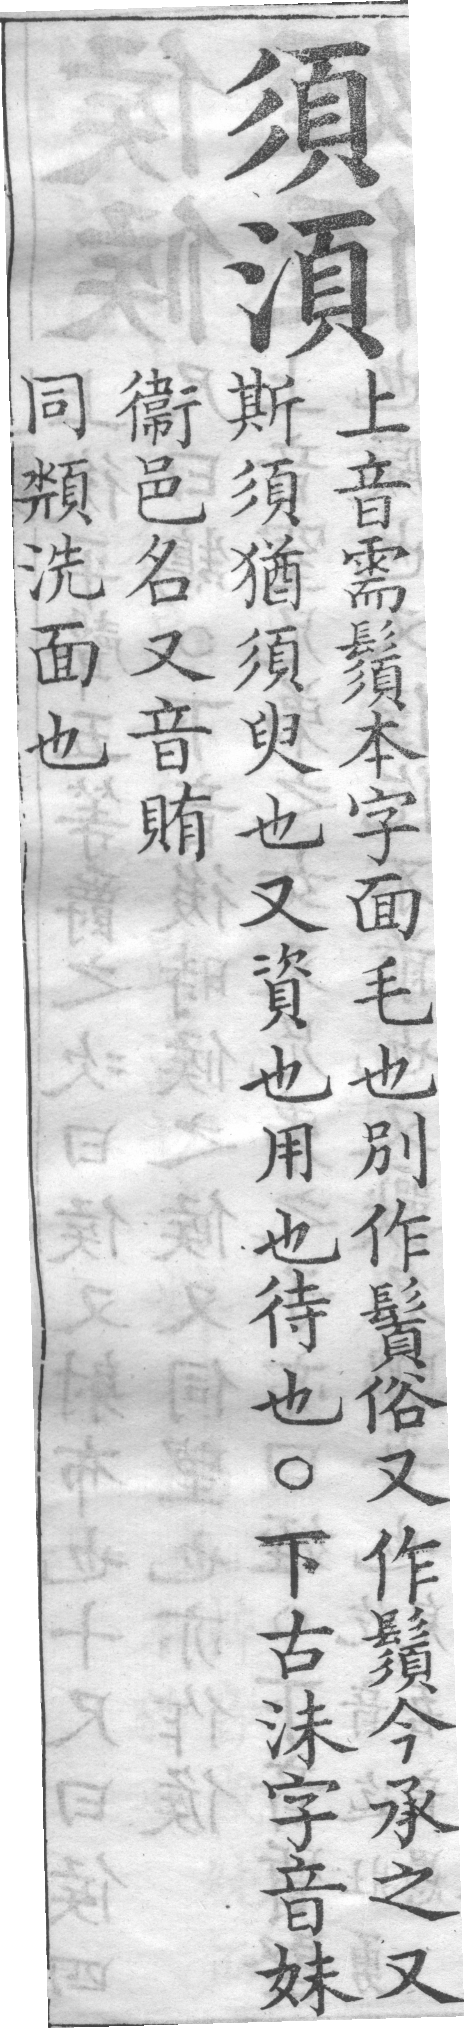 須湏
上音需鬚本字面毛也別作鬢俗又作鬚今承之又
斯須猶須臾也又資也用也待也○下古沬字音妹
衞邑名又音賄
同頮洗面也